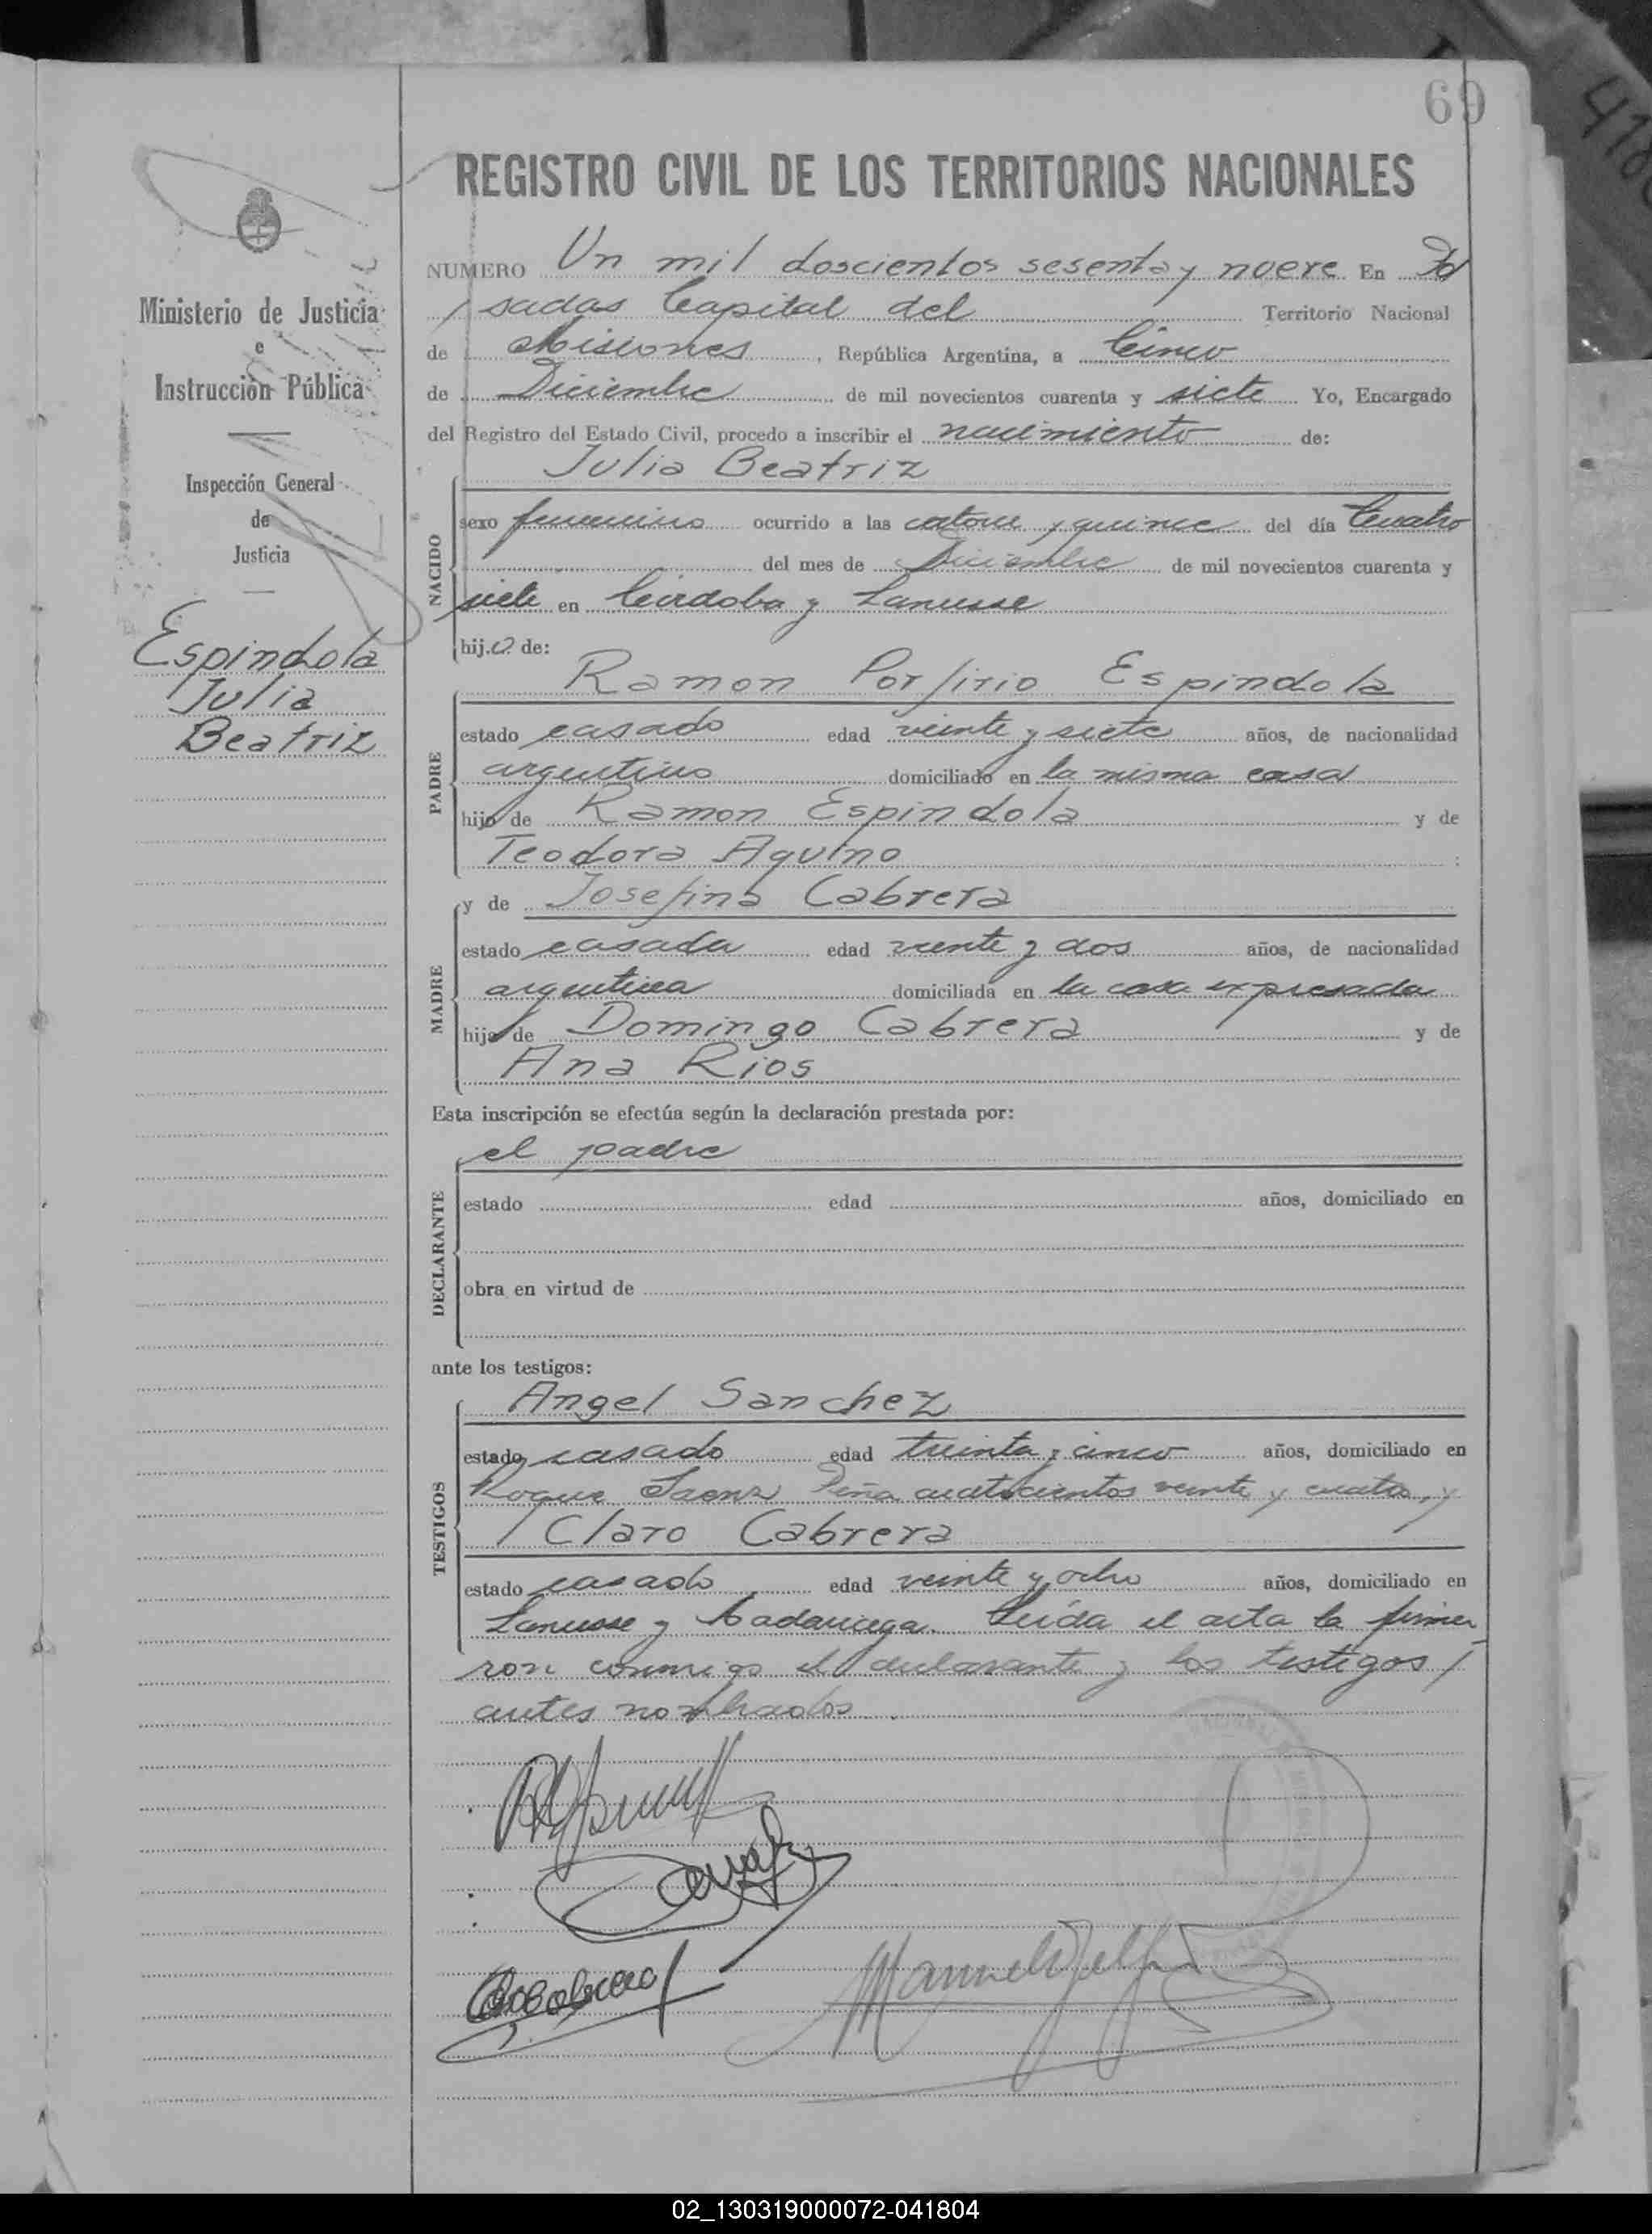 69
REGISTRO CIVIL DE LOS TERRITORIOS NACIONALES
Ministerio de Justicia
e
Instrucción Pública
Inspección General
de
Justicia
Espindola
Julia
Beatriz
NUMERO Un mil doscientos sesenta y nueve En Po
sadas Capital del Territorio Nacional
de Misiones, República Argentina, a Cinco
de Diciembre de mil novecientos cuarenta y siete Yo, Encargado
del Registro del Estado Civil, procedo a inscribir el nacimiento de:
NACIDO
Julia Beatriz
sexo femenino ocurrido a las catorce y quince del día Cuatro
del mes de Diciembre de mil novecientos cuarenta y
siete en Córdoba y Lanusse
hija de:
PADRE
Ramon Porfirio Espindola
estado casado edad veinte y siete años, de nacionalidad
argentino domiciliado en la misma casa
hijo de Ramon Espindola y de
Teodora Aquino
MADRE
y de Josefina Cabrera
estado casada edad veinte y dos años, de nacionalidad
argentina domiciliada en la casa expresada
hija de Domingo Cabrera y de
Ana Ríos
Esta inscripción se efectúa según la declaración prestada por:
DECLARANTE
el padre
estado edad años, domiciliado en
obra en virtud de
ante los testigos:
TESTIGOS
Angel Sanchez
estado casado edad treinta y cinco años, domiciliado en
Roque Saenz Peña cuatrocientos veinte y cuatro, y
Claro Cabrera
estado casado edad veinte y ocho años, domiciliado en
Lanusse y Leída el acta la firma
ron conmigo el declarante y los testigos
antes nombrados
02_130319000072-041804